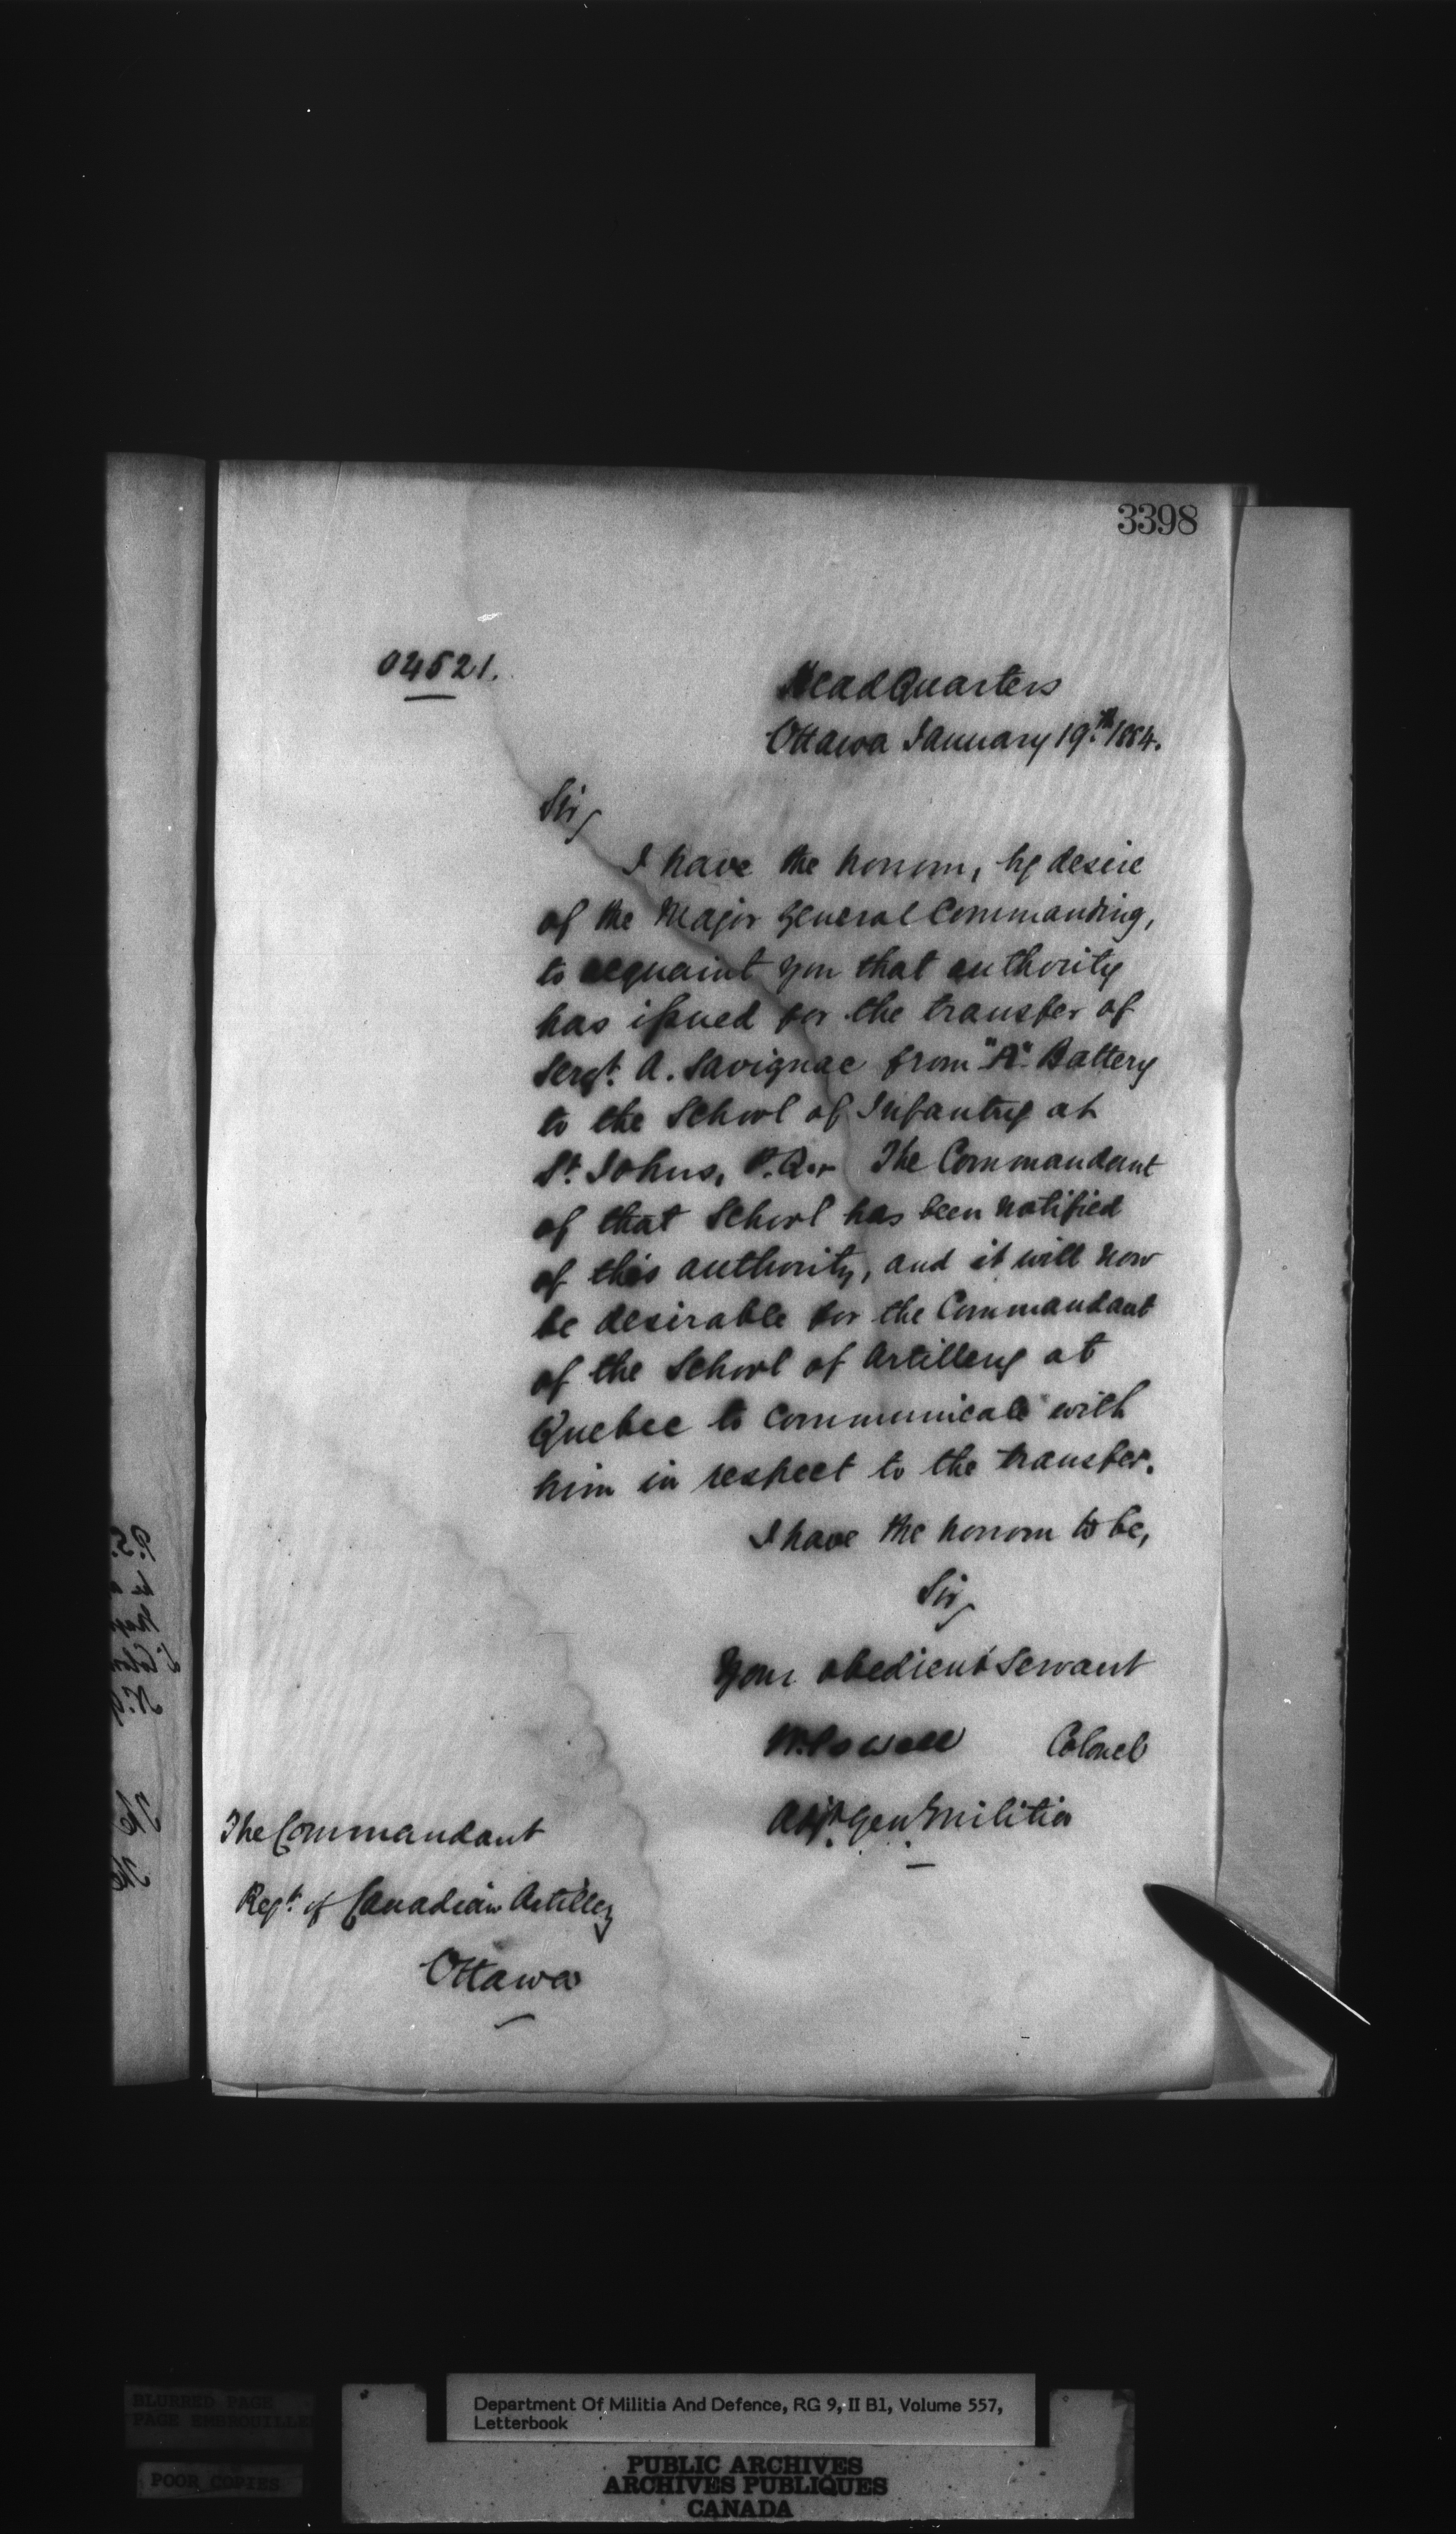 3398
04521.
HeadQuarters
Ottawa January 19th. 1884.
Sir,
I have the honour, by desire
of the Major General Commanding,
to acquaint you that authority
has issued for the transfer of
Sergt. A. Savignac from "A" Battery
to the School of Infantry at
St. Johns, P.Q. The Commandant
of that School has been notified
of this authority, and it will now
be desirable for the Commandant
of the School of Artillery at
Quebec to communicate with
him in respect to the transfer.
I have the honour to be,
Sir,
Your obedient Servant
W. Powell Colonel
Adjt. Genl. Militia
The Commandant
Regt. of Canadian Artillery
Ottawa
BLURRED PAGE
PAGE EMBROUILLEE
POOR COPIES
Department Of Militia And Defence, RG 9, II B1, Volume 557,
Letterbook
PUBLIC ARCHIVES
ARCHIVES PUBLIQUES
CANADA